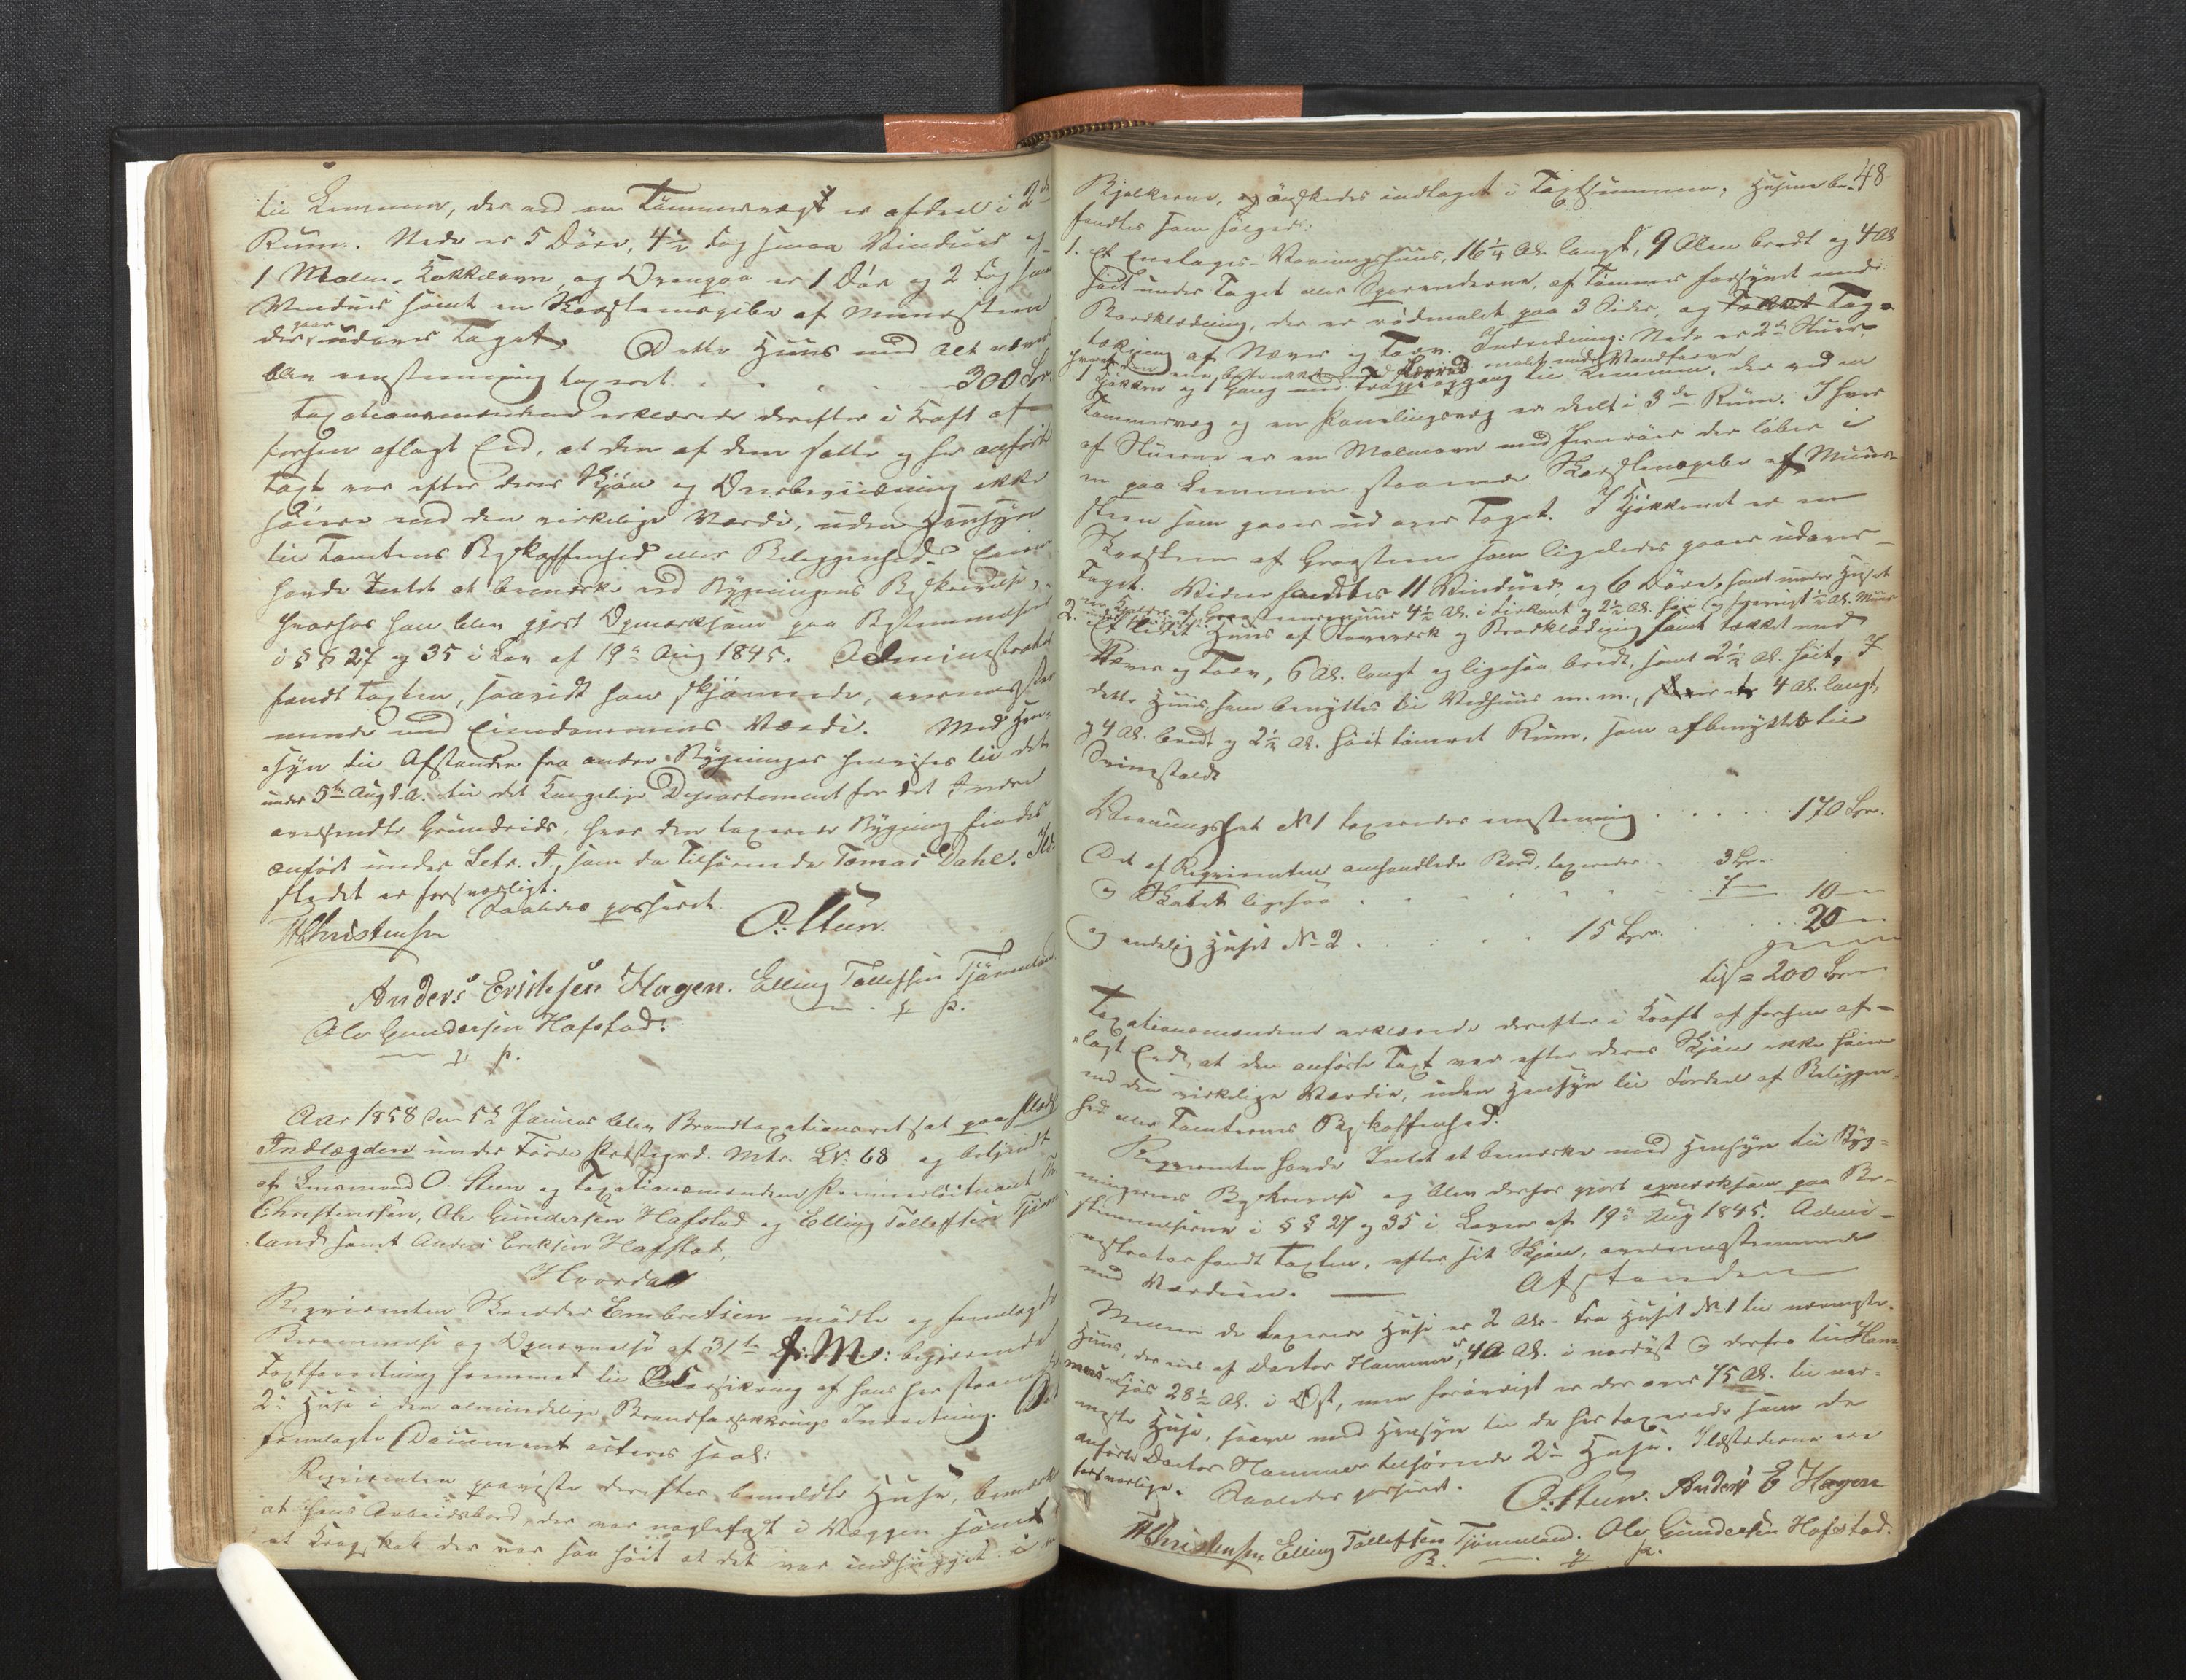 til Lemmen, der ved en Tömmervæg er afdeelt i 2de
Rum. Nede er 5 Döre, 4½ Fag smaa Vinduer og
1 Malm-Kakkelovn, og Ovenpaa er 1 Dör og 2 Fag smaa
Vinduer samt en Skorsteenspibe af Muursteen
der gaar udover Taget. Dette Huus med Alt
blev eenstemmig taxeret . . . . 300 Spd.
Taxationsmændene erklærede derefter i Kraft af
forhen aflagt Eed, at den af dem satte og her anförte
Taxt var efter deres Skjön og Overbeviisning ikke
höiere end den virkelige Værdi, uden Hensyn
til Tomtens Beskaffenhed eller Beliggenhed. Eieren
havde Intet at bemærke ved Bygningens Beskrivelse,
hvorhos han blev gjort Opmærksom paa Bestemmelserne
i §§ 27 og 35 i Lov af 19de Aug 1845. Administrator
fandt Taxten, saavidt han skjönnede, overeensstem-
mende med Eiendommens Værdi. Med Hen-
syn til Afstanden fra andre Bygninger henvises til det
under 5te Aug d. A. til det Kongelige Departement for det Indre
indsendte Grundrids, hvor den taxerede Bygning findes
anfört under Letr. A, som da tilhörende Tomas Dahl. Ild-
stedet er forsvarligt.
Saaledes passeret.
Christensen O. Steen.
Anders Erichsen Hagen. Elling Tollefsen Tjömmeland
Ole Gundersen Hafstad.
m. f. P.
Aar 1858 den 5te Januar blev Brandtaxationsret sat paa Pladsen
Indlægden under Förde Præstegrd. Mtr. Lr. 68 og betjent
af Lensmand O. Steen og Taxationsmændene Premierlöitnant
Christensen, Ole Gundersen Hafstad og Elling Tollefsen Tjömme-
land samt Anders Eriksen Hafstad,
Hvorda
Reqvirenten Skræder Embretsen mödte og fremlagde
Berammelse og Opnævnelse af 31te begjærende
Taxtforretning fremmet til Assurering af hans her staaende
2de Huse i den almindelige Brandforsikrings Indretning. Det
fremlagte Document acteres saal:
Reqvirenten paaviste derefter bemeldte Huse, bemærkede
at hans Arbeidsbord, der var naglefast i Væggen samt
et Kragskab der var saa höit at det var indhugget i
48
Bjelkerne, og önskedes indtaget i Taxtsummen, Husene be-
fandtes som fölger:
1. Et Eenetages-Vaaningshuus, 16¼ Al. langt, 9 Alen bredt og 4 Al
höit under Taget eller Sperrenderne, af Tömmer forsynet med
Bordklædning, der er rödmalet paa 3 Sider, og Tag-
tækning af Næver og Torv. Indredning: Nede er 2de Stuer
hvoraf den ene betrukket med Lærred malet med Vandfarve
1 Kjökken og 1 Gang med Trappeopgang til Lemmen, der ved en
Tömmervæg og en Panelingsvæg er deelt i 3de Rum. I hver
af Stuerne er en Malmovn med Jernrör der löber i
en paa Lemmen staaende Skorsteenspibe af Muur-
steen som gaaer ud over Taget. I Kjökkenet er en
Skorsteen af Graasteen som ligeledes gaaer udover
Taget. Videre fandtes 11 Vinduer, og 6 Döre, samt under Huset
en Kjelder af Graasteensmuur 4½ Al. i Firkant og 2½ Al. höi og forövrigt ½ Al. Muur
2. Et lidet Huus af Stavværk og Bordklædning samt tækket med
Næver og Torv, 6 Al. langt og ligesaa bredt, samt 2½ Al. höit, I
dette Huus, som benyttes til Vedhuus m. m., er 4 Al. langt,
og 4 Al. bredt og 2½ Al. höit tömret Rum, som afbenyttes til
Sviinstald
Vaaningshuset No 1 taxeredes eenstemmig . . . . . 170 Spd.
Det af Reqvirenten omhandlede Bord, taxeredes . . 3 Spd.
og Skabet ligesaa . . . . . . 7 — 10 —
og endelig Huset No 2 . . . . . 15 Spd. . . . 20 —
tils = 200 Spd
Taxationsmændene erklærede derefter i Kraft af forhen af-
lagt Eed, at den anförte Taxt var efter deres Skjön ikke höiere
end den virkelige Værdie, uden Hensyn til Fordeel af Beliggen-
hed eller Tomternes Beskaffenhed.
Reqvirenten havde Intet at bemærke med Hensyn til Byg-
ningernes Beskrivelse og blev derhos gjort opmærksom paa Be-
stemmelserne i §§ 27 og 35 i Loven af 19de Aug 1845. Admi-
nistrator fandt Taxten, efter sit Skjön, overeensstemmende
med Værdien. — Afstanden
Mellem de taxerede Huse er 2 Al. Fra Huset No 1 til nærmeste
Huus, der eies af Doctor Hammer, 40 Al. i nordöst og derfra til Ham-
mers Fjös 28½ Al. i Öst, men forövrigt er der over 75 Al. til nær-
meste Huse, saavel med Hensyn til de her taxerede som de
anförte Doctor Hammer tilhörende 2de Huse. Ildstederne ere
forsvarlige. Saaledes passeret. O. Steen. Anders E Hagen
Christensen Elling Tollefsen Tjömmeland. Ole Gundersen Hafstad.
m. f. P.